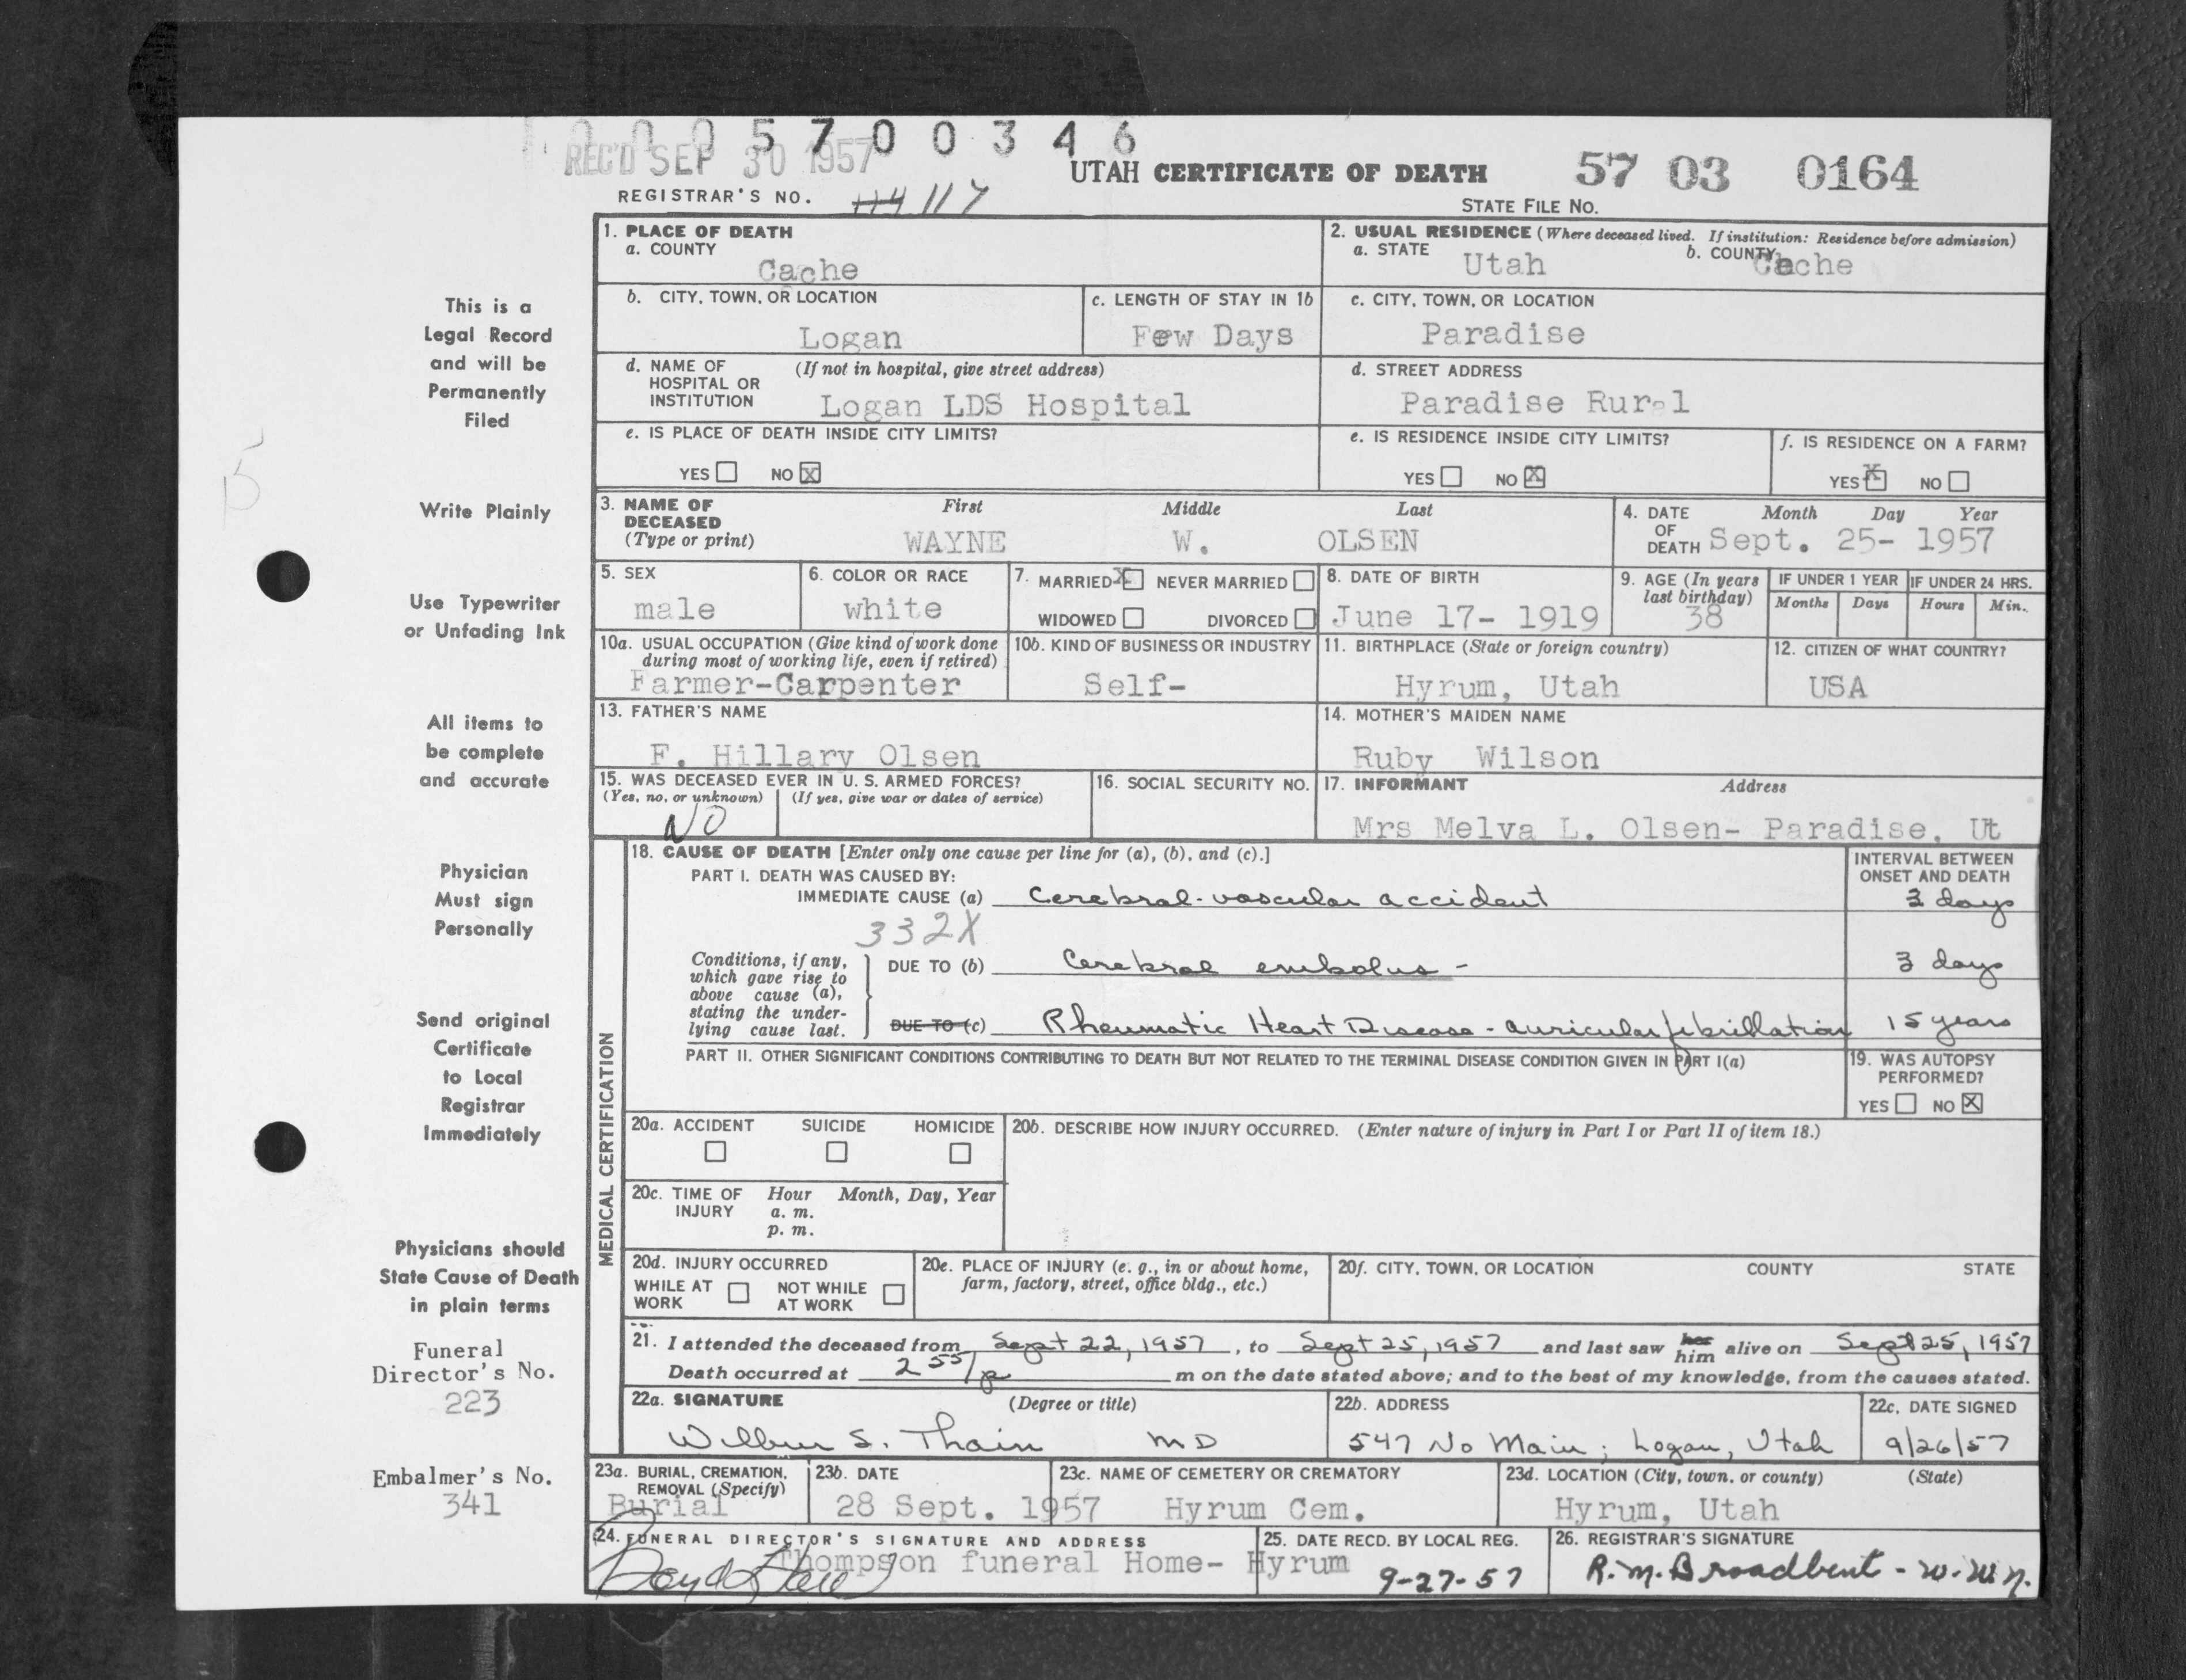 0005700346
REC'D SEP 30 1957
UTAH CERTIFICATE OF DEATH
57 03 0164
REGISTRAR'S NO. 114 117
STATE FILE NO.
This is a
Legal Record
and will be
Permanently
Filed
Write Plainly
Use Typewriter
or Unfading Ink
All items to
be complete
and accurate
Physician
Must sign
Personally
Send original
Certificate
to Local
Registrar
Immediately
Physicians should
State Cause of Death
in plain terms
Funeral
Director's No.
223
Embalmer's No.
341
1. PLACE OF DEATH
a. COUNTY
Cache
2. USUAL RESIDENCE (Where deceased lived. If institution: Residence before admission)
a. STATE Utah b. COUNTY Cache
b. CITY, TOWN, OR LOCATION
Logan
c. LENGTH OF STAY IN 1b
Few Days
c. CITY, TOWN, OR LOCATION
Paradise
d. NAME OF (If not in hospital, give street address)
HOSPITAL OR
INSTITUTION Logan LDS Hospital
d. STREET ADDRESS
Paradise Rural
e. IS PLACE OF DEATH INSIDE CITY LIMITS?
YES NO X
e. IS RESIDENCE INSIDE CITY LIMITS?
YES NO X
f. IS RESIDENCE ON A FARM?
YES X NO
3. NAME OF First Middle Last
DECEASED
(Type or print) WAYNE W. OLSEN
4. DATE Month Day Year
OF
DEATH Sept. 25- 1957
5. SEX
male
6. COLOR OR RACE
white
7. MARRIED X NEVER MARRIED
WIDOWED DIVORCED
8. DATE OF BIRTH
June 17- 1919
9. AGE (In years
last birthday)
38
IF UNDER 1 YEAR IF UNDER 24 HRS.
Months Days Hours Min.
10a. USUAL OCCUPATION (Give kind of work done
during most of working life, even if retired)
Farmer-Carpenter
10b. KIND OF BUSINESS OR INDUSTRY
Self-
11. BIRTHPLACE (State or foreign country)
Hyrum, Utah
12. CITIZEN OF WHAT COUNTRY?
USA
13. FATHER'S NAME
F. Hillary Olsen
14. MOTHER'S MAIDEN NAME
Ruby Wilson
15. WAS DECEASED EVER IN U. S. ARMED FORCES?
(Yes, no, or unknown) (If yes, give war or dates of service)
NO
16. SOCIAL SECURITY NO.
17. INFORMANT Address
Mrs Melva L. Olsen- Paradise, Ut
MEDICAL CERTIFICATION
18. CAUSE OF DEATH [Enter only one cause per line for (a), (b), and (c).]
PART I. DEATH WAS CAUSED BY:
INTERVAL BETWEEN
ONSET AND DEATH
IMMEDIATE CAUSE (a) Cerebral-vascular accident 3 days
332X
Conditions, if any,
which gave rise to
above cause (a),
stating the under-
lying cause last.
DUE TO (b) Cerebral embolus - 3 days
DUE TO (c) Rheumatic Heart Disease - auricular fibrillation 15 years
PART II. OTHER SIGNIFICANT CONDITIONS CONTRIBUTING TO DEATH BUT NOT RELATED TO THE TERMINAL DISEASE CONDITION GIVEN IN PART I(a)
19. WAS AUTOPSY
PERFORMED?
YES NO X
20a. ACCIDENT SUICIDE HOMICIDE
20b. DESCRIBE HOW INJURY OCCURRED. (Enter nature of injury in Part I or Part II of item 18.)
20c. TIME OF Hour Month, Day, Year
INJURY a. m.
p. m.
20d. INJURY OCCURRED
WHILE AT NOT WHILE
WORK AT WORK
20e. PLACE OF INJURY (e. g., in or about home,
farm, factory, street, office bldg., etc.)
20f. CITY, TOWN, OR LOCATION COUNTY STATE
21. I attended the deceased from Sept 22, 1957, to Sept 25, 1957 and last saw her him alive on Sept 25, 1957
Death occurred at 2 55/p m on the date stated above; and to the best of my knowledge, from the causes stated.
22a. SIGNATURE (Degree or title)
Wilbur S. Thain MD
22b. ADDRESS
547 No Main; Logan, Utah
22c. DATE SIGNED
9/26/57
23a. BURIAL, CREMATION,
REMOVAL (Specify)
Burial
23b. DATE
28 Sept. 1957
23c. NAME OF CEMETERY OR CREMATORY
Hyrum Cem.
23d. LOCATION (City, town, or county) (State)
Hyrum, Utah
24. FUNERAL DIRECTOR'S SIGNATURE AND ADDRESS
Thompson funeral Home- Hyrum
25. DATE RECD. BY LOCAL REG.
9-27-57
26. REGISTRAR'S SIGNATURE
R. M. Broadbent - w.w.n.